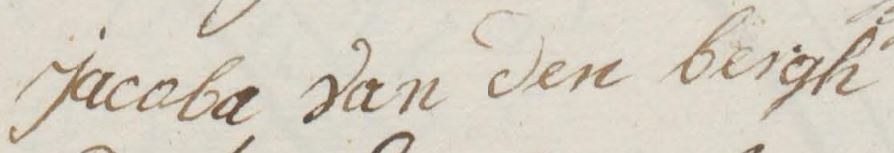 jacoba van den bergh